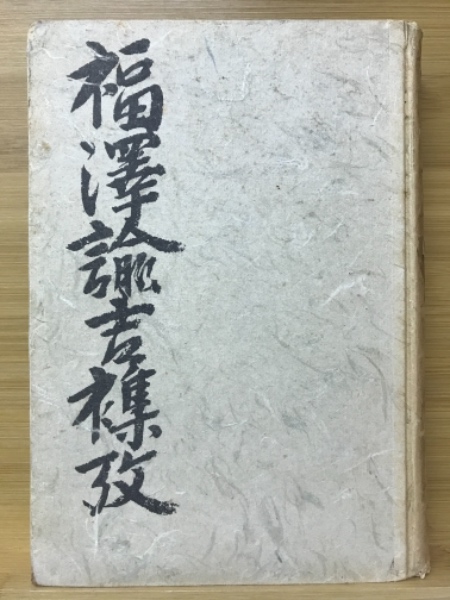 福澤諭吉襍攷